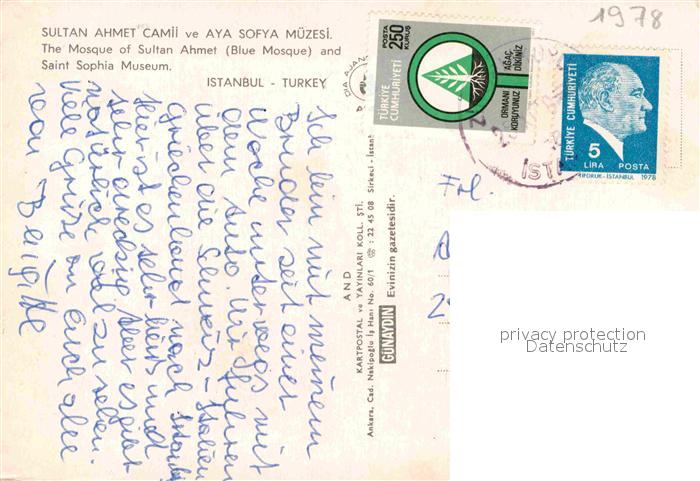 SULTAN AHMET CAMİİ ve AYA SOFYA MÜZESİ.
The Mosque of Sultan Ahmet (Blue Mosque) and
Saint Sophia Museum.
ISTANBUL - TURKEY
1978
POSTA 250 KURUŞ
TÜRKİYE CUMHURİYETİ
AĞAÇ DİKİNİZ
ORMANI KORUYUNUZ
TÜRKİYE CUMHURİYETİ
5
LİRA POSTA
İST
Frl.
Ich bin mit meinem
Bruder seit einer
Woche unterwegs mit
dem Auto. Wir fuhren
über die Schweiz - Italien
Griechenland nach Istanbul
hier ist es sehr heiss und
sehr dreckig. Aber es gibt
natürlich viel zu sehen.
Viele Grüsse an euch alle
von Brigitte
AND
KARTPOSTAL ve YAYINLARI KOLL. ŞTİ.
Ankara, Cad. Nakipoğlu İş Hanı No. 60/1 ☎ : 22 45 08 Sirkeci - İstanb
GÜNAYDIN Evinizin gazetesidir.
privacy protection
Datenschutz